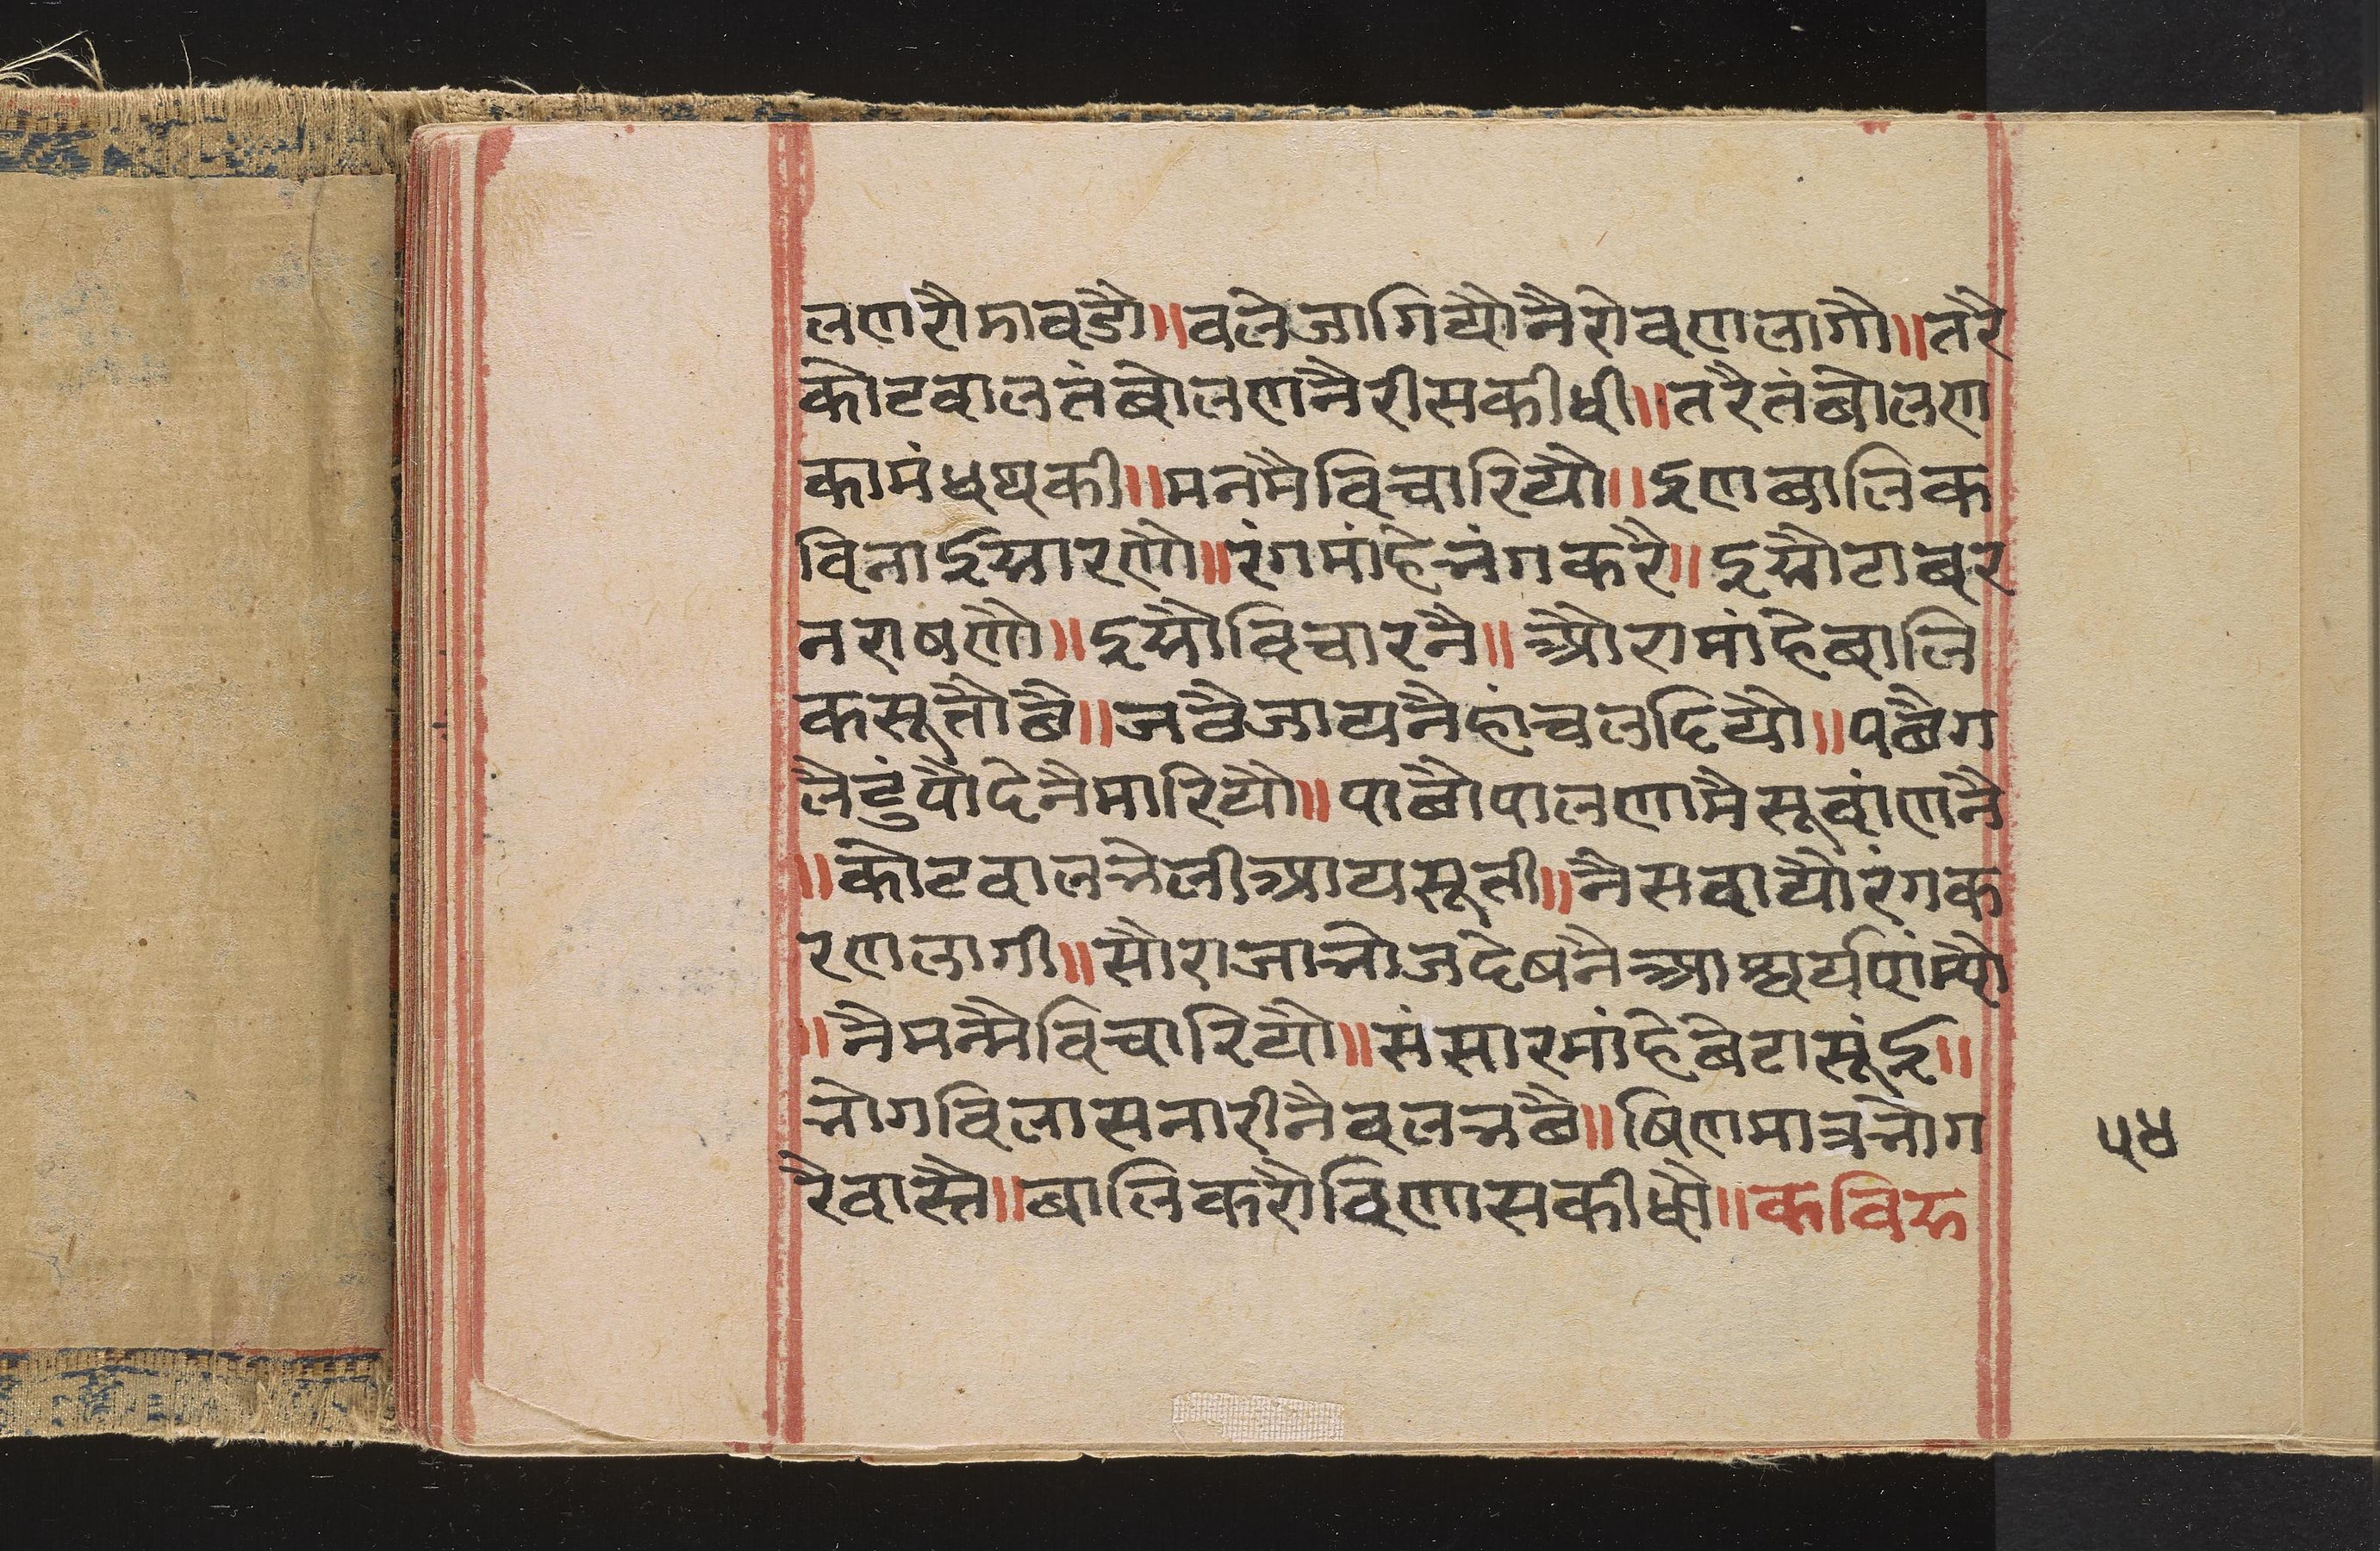 लणरौमावडौ॥वलेजागियौनैरोवणलागौ॥तरै
कोटवालतंबोलणनैरीसकीधी॥तरैतंबोलण
कामंधथकी॥मनमैविचारियौ॥इणबालिक
विनाईसारणौ॥रंगमांहेभंगकरै॥इसौटाबर
नराषणौ॥इसौविचारनै॥औरामांहेबालि
कसूतौछै॥जठैजायनैहांचलदियौ॥पछैग
लैटुंपौदेनैमारियौ॥पाछौपालणामैसूवांणनै
॥कोटवालभेलीआयसूती॥नैसवायौरंगक
रणलागी॥सौराजाभोजदेषनैआश्चर्यपांम्यो
॥नैमन्मैविचारियौ॥संसारमांहेबेटासूंई॥
भोगविलासनारीनैवलभछै॥षिणमात्रभोग
रैवास्तै॥बालिकरौविणासकीधौ॥कविक
५४